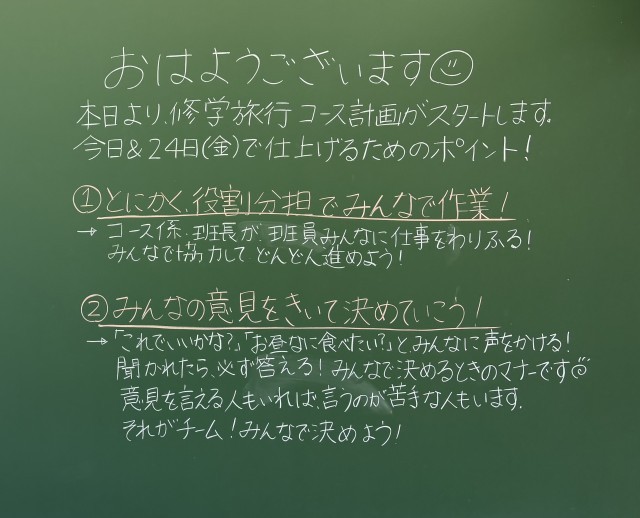 おはようございます☺
本日より、修学旅行コース計画がスタートします。
今日&24日(金)で仕上げるためのポイント!
①とにかく、役割分担でみんなで作業!
→ コース係、班長が、班員みんなに仕事をわりふる!
みんなで協力してどんどん進めよう!
②みんなの意見をきいて決めていこう!
→「これでいいかな?」「お昼なに食べたい?」と、みんなに声をかける!
聞かれたら、必ず答えろ!みんなで決めるときのマナーです☺
意見を言える人もいれば、言うのが苦手な人もいます。
それがチーム!みんなで決めよう!